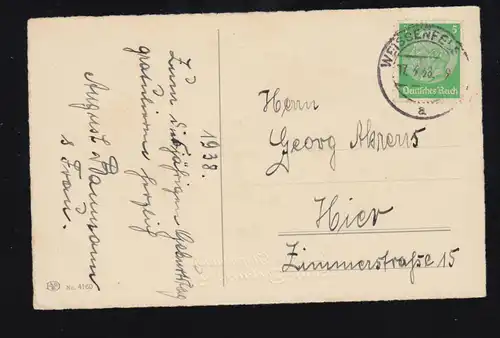 1938.
Zum diesjährigen Geburtstag
gratulieren herzlich
August Baumann
& Frau.
No. 4160
WEISSENFELS
17.4.38
a
5
Deutsches Reich
Herrn
Georg Ahrens
Hier
Zimmerstraße 15